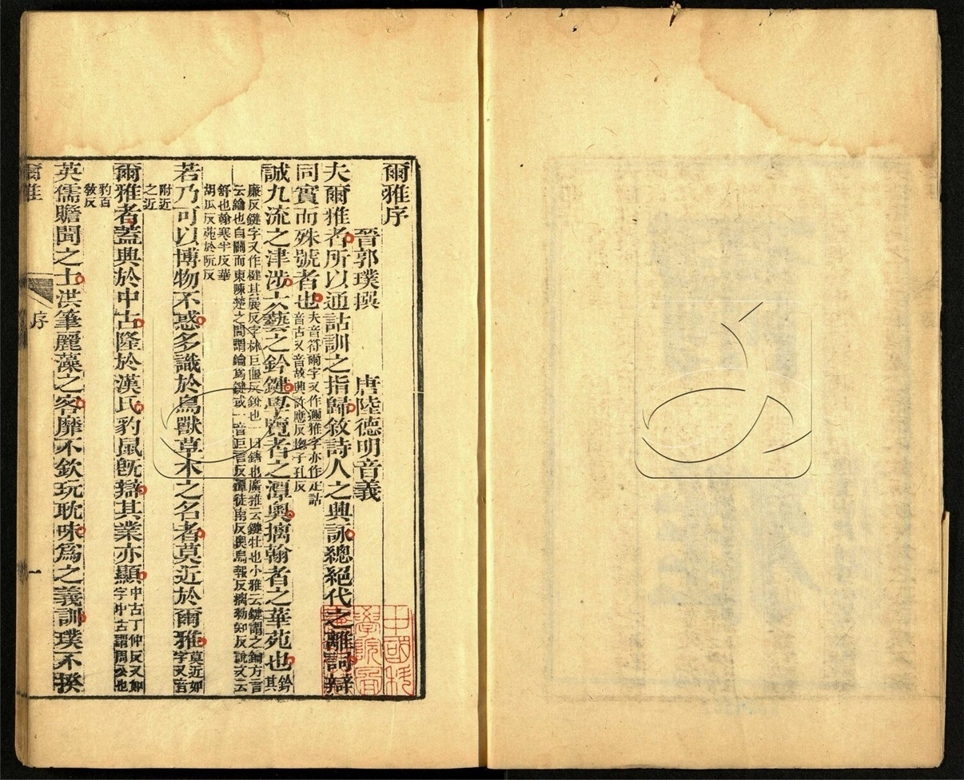 爾雅序
晉郭璞撰　唐陸德明音義
夫爾雅者所以通詁訓之指歸敘詩人之興詠總絕代之離詞辯
同實而殊號者也夫音符爾字又作邇雅字亦作疋詁音古又音故興許應反揔子孔反
誠九流之津涉六藝之鈐鍵學覽者之潭奧摛翰者之華苑也鈐其
廉反鍵字又作楗其展反字林巨偃反鈐也一曰鎋也廣雅云鍵牡也小雅云鍵謂之鑰方言
云鑰也自關而東陳楚之間謂鑰為鍵或一音巨言反潭徒南反奧烏報反摛勑知反說文云
舒也翰寒半反華胡瓜反苑於阮反
若乃可以博物不惑多識於鳥獸草木之名者莫近於爾雅莫近如字又音
附近之近
爾雅者蓋興於中古隆於漢氏豹鼠旣辯其業亦顯中古丁仲反又如字中古謂周公也
豹百敎反
英儒贍聞之士洪筆麗藻之客靡不欽玩耽味爲之義訓璞不揆
爾雅
序
一
中國科
學院